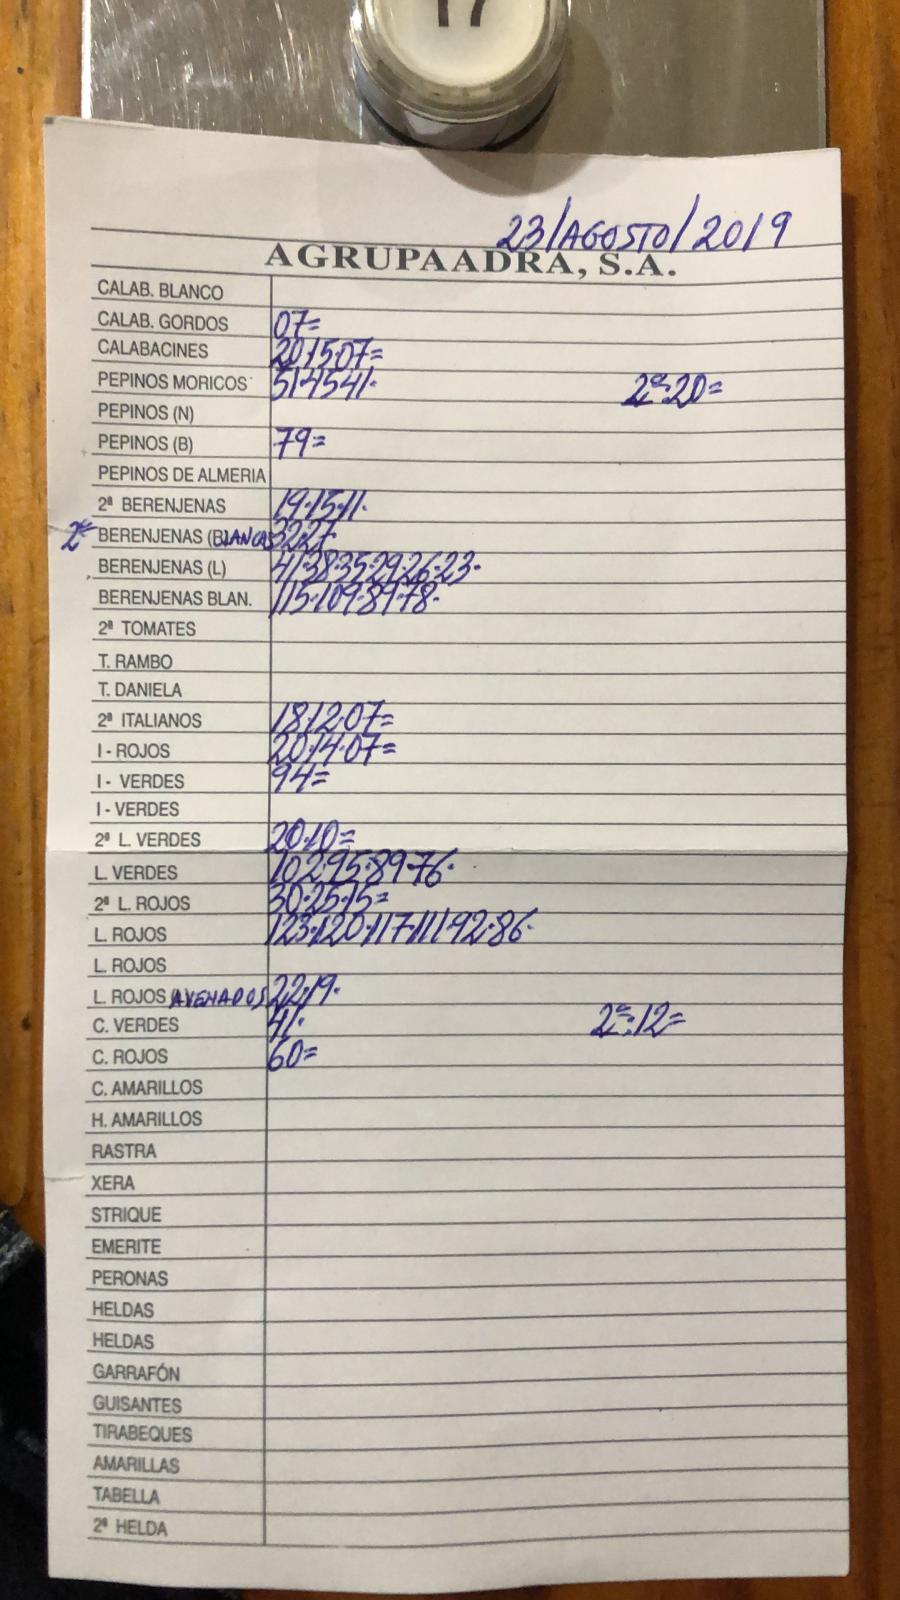 17
23/AGOSTO/2019
AGRUPAADRA, S.A.
CALAB. BLANCO
CALAB. GORDOS 07=
CALABACINES 20·15·07=
PEPINOS MORICOS 51·45·41· 2ª:20=
PEPINOS (N)
PEPINOS (B) 79=
PEPINOS DE ALMERIA
2ª BERENJENAS 19·15·11·
2ª BERENJENAS (BLANCAS 32·27·
BERENJENAS (L) 41·38·35·29·26·23·
BERENJENAS BLAN. 115·109·89·78·
2ª TOMATES
T. RAMBO
T. DANIELA
2ª ITALIANOS 18·12·07=
I - ROJOS 20·14·07=
I - VERDES 94=
I - VERDES
2ª L. VERDES 20·10=
L. VERDES 102·95·89·76·
2ª L. ROJOS 30·25·15=
L. ROJOS 123·120·117·111·92·86·
L. ROJOS
L. ROJOS AVENADOS 22·19·
C. VERDES 41· 2ª:12=
C. ROJOS 60=
C. AMARILLOS
H. AMARILLOS
RASTRA
XERA
STRIQUE
EMERITE
PERONAS
HELDAS
HELDAS
GARRAFÓN
GUISANTES
TIRABEQUES
AMARILLAS
TABELLA
2ª HELDA